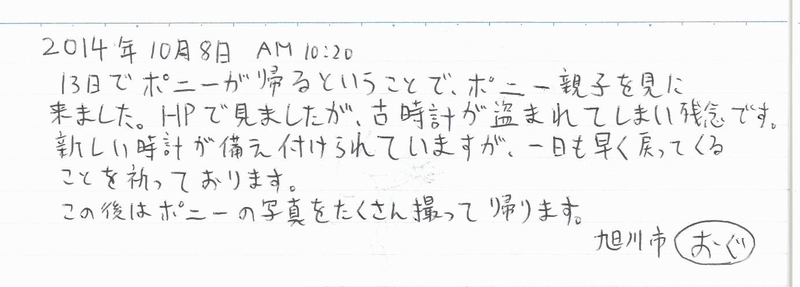 2014年10月8日 AM 10:20
13日でポニーが帰るということで、ポニー親子を見に
来ました。HPで見ましたが、古時計が盗まれてしまい残念です。
新しい時計が備え付けられていますが、一日も早く戻ってくる
ことを祈っております。
この後はポニーの写真をたくさん撮って帰ります。
旭川市 おーぐ